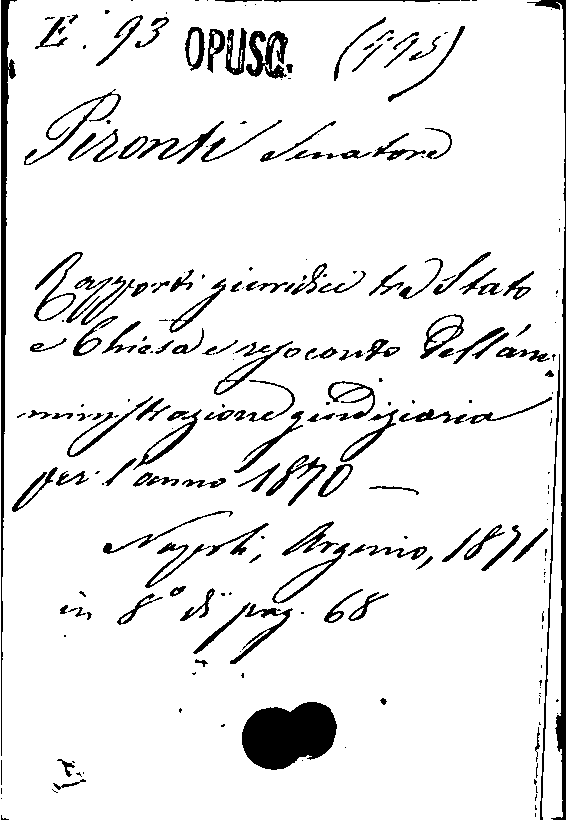 E. 93 OPUSC. (995)
Pironti Senatore
Rapporti giuridici tra Stato
e Chiesa e resoconto dell'am-
ministrazione giudiziaria
per l'anno 1870 —
Napoli, Argenio, 1871
in 8° di pag. 68